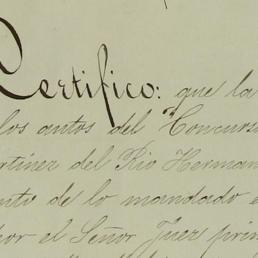 Certifico: que la
los autos del Concurs
rtinez del Rio Herman
nto de lo mandado e
por el Señor Juez prim